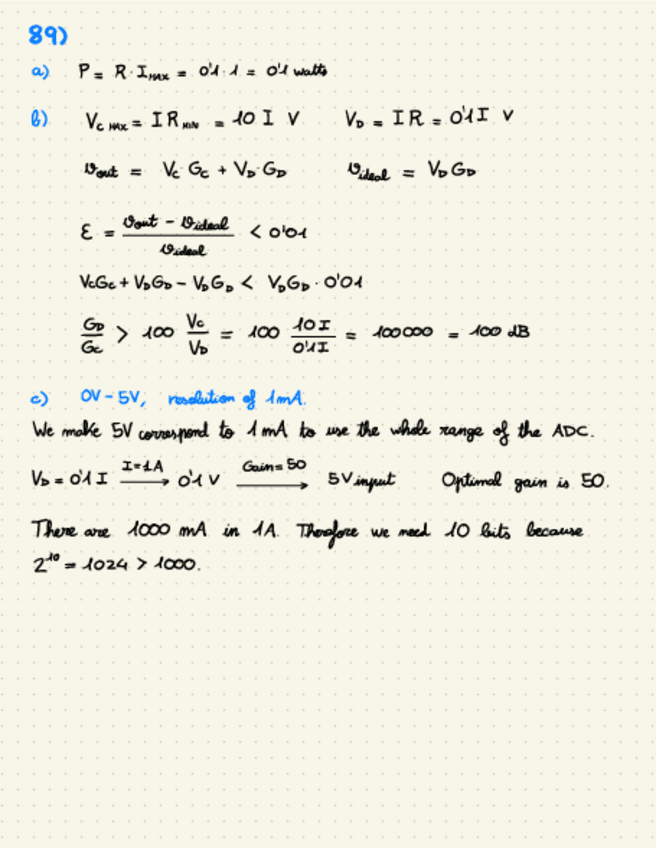 89)
a) P = R · I_MAX = 0'1 · 1 = 0'1 watts
b) V_C MAX = I R_MIN = 10 I V V_D = I R = 0'1 I V
v_out = V_C · G_C + V_D · G_D v_ideal = V_D G_D
ε = (v_out - v_ideal) / v_ideal < 0'01
V_C G_C + V_D G_D - V_D G_D < V_D G_D · 0'01
G_D / G_C > 100 V_C / V_D = 100 10 I / 0'1 I = 100000 = 100 dB
c) 0V - 5V, resolution of 1mA.
We make 5V correspond to 1 mA to use the whole range of the ADC.
V_D = 0'1 I —I=1A→ 0'1 V —Gain=50→ 5V input Optimal gain is 50.
There are 1000 mA in 1A. Therefore we need 10 bits because
2^10 = 1024 > 1000.